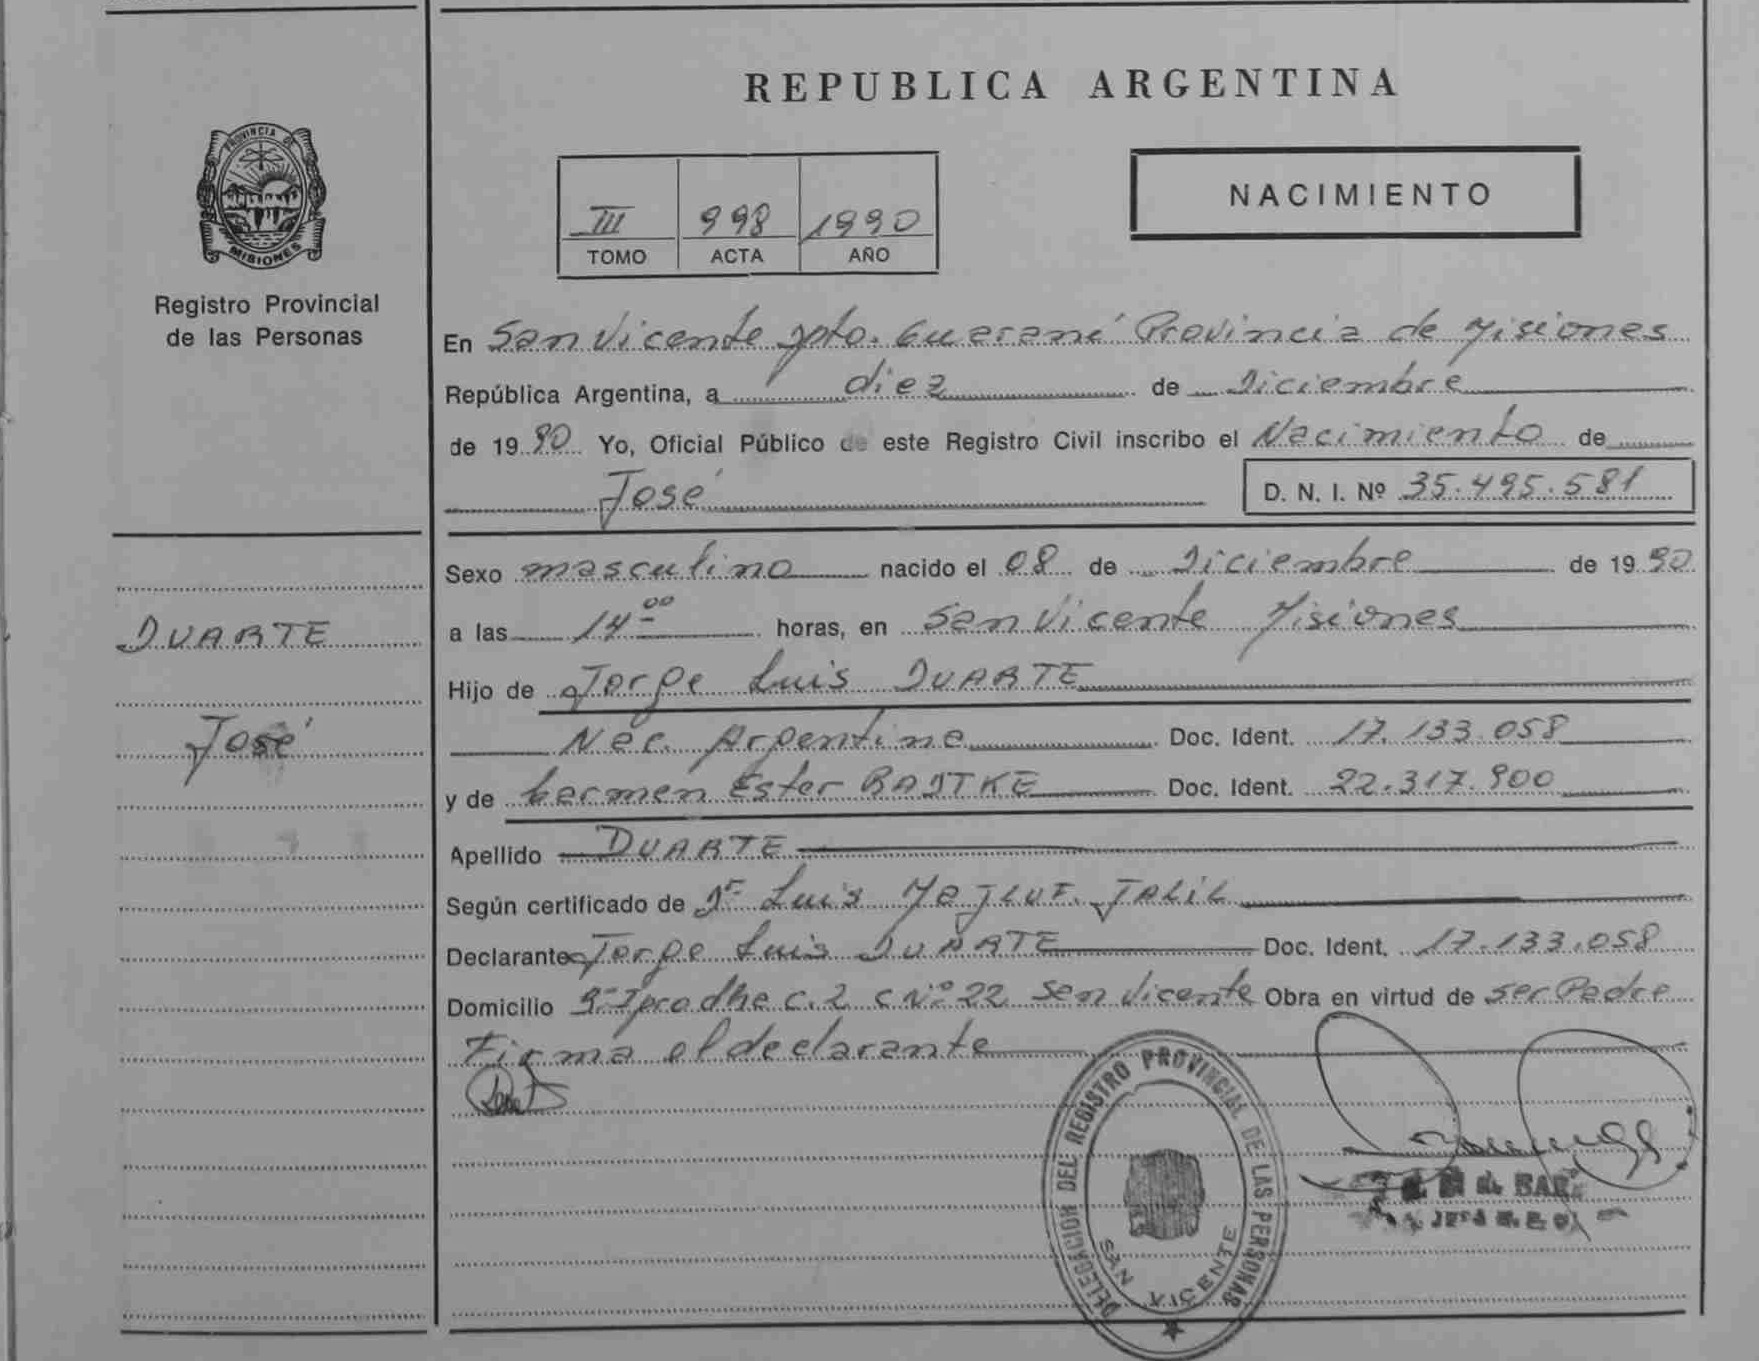 REPUBLICA ARGENTINA
PROVINCIA DE MISIONES
Registro Provincial
de las Personas
NACIMIENTO
III 998 1990
TOMO ACTA AÑO
En San Vicente Dpto. Guaraní Provincia de Misiones
República Argentina, a diez de Diciembre
de 1990 Yo, Oficial Público de este Registro Civil inscribo el Nacimiento de
José D. N. I. Nº 35.495.581
Sexo masculino nacido el 08 de Diciembre de 1990
DUARTE
a las 14 00 horas, en San Vicente Misiones
Hijo de Jorge Luis DUARTE
José
Nac. Argentina Doc. Ident. 17.133.058
y de Carmen Ester Doc. Ident. 22.317.900
Apellido DUARTE
Según certificado de Dr Luis JALIL
Declarante Jorge Luis DUARTE Doc. Ident. 17.133.058
Domicilio c. 2 c Nº 22 San Vicente Obra en virtud de ser Padre
Firma el declarante
DELEGACION DEL REGISTRO PROVINCIAL DE LAS PERSONAS
SAN VICENTE